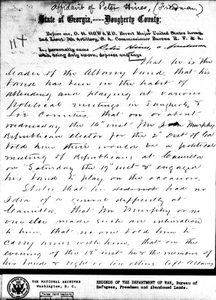 Affidavit of Peter Hines, (Freedman)
State of Georgia, Dougherty County:
Before me, O. H. HOWARD, Brevet Major United States
2nd Lieut. 5th Artillery, & Sub Commissioner Bureau R. F. &
in, personally came Peter Hines, a freedman
who being duly sworn, deposes and says
That he is the
leader of the Albany band; that his
band has been in the habit of
attending and playing at various
Political meetings in Dougherty &
Lee Counties that on or about
Wednesday the 16th inst Mr Jno Murphy
Republican elector for the 2nd Dist of Ga
told him there would be a political
meeting of Republicans at Camilla
on Saturday the 19th inst & engaged
his band to play on the occasion,
States that he had not no
Idea of a general difficulty at
Camilla, that Mr Murphy or no
one else made such an intimation
to him, that no one told him to
carry arms with him, that on the
evening of the 18th inst he the members of
his band & eight or ten others left Albany
THE NATIONAL ARCHIVES
Washington, D. C.
RECORDS OF THE DEPARTMENT OF WAR, Bureau of
Refugees, Freedmen and Abandoned Lands.